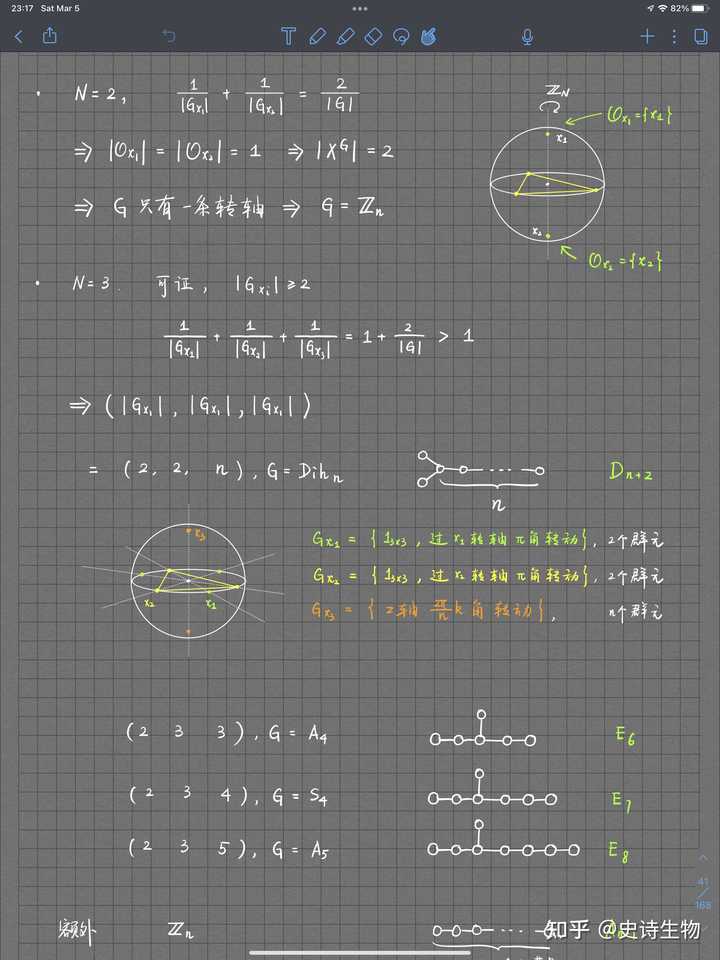 23:17 Sat Mar 5
82%
• N=2, 1/|Gx₁| + 1/|Gx₂| = 2/|G|
ℤN
𝒪x₁={x₁}
x₁
⇒ |𝒪x₁| = |𝒪x₂| = 1 ⇒ |X^G| = 2
⇒ G 只有一条转轴 ⇒ G = ℤn
x₂
𝒪x₂={x₂}
• N=3. 可证, |Gxᵢ| ≥ 2
1/|Gx₁| + 1/|Gx₂| + 1/|Gx₃| = 1 + 2/|G| > 1
⇒ (|Gx₁|, |Gx₁|, |Gx₁|)
= (2, 2, n), G = Dih n
n
Dn+2
x₃
x₂
x₁
Gx₁ = {1₃ₓ₃, 过 x₁ 转轴 π 角转动}, 2个群元
Gx₂ = {1₃ₓ₃, 过 x₂ 转轴 π 角转动}, 2个群元
Gx₃ = {z轴 2π/n k 角转动}, n个群元
(2 3 3), G = A₄ E₆
(2 3 4), G = S₄ E₇
(2 3 5), G = A₅ E₈
41
168
额外 ℤn
知乎 @史诗生物